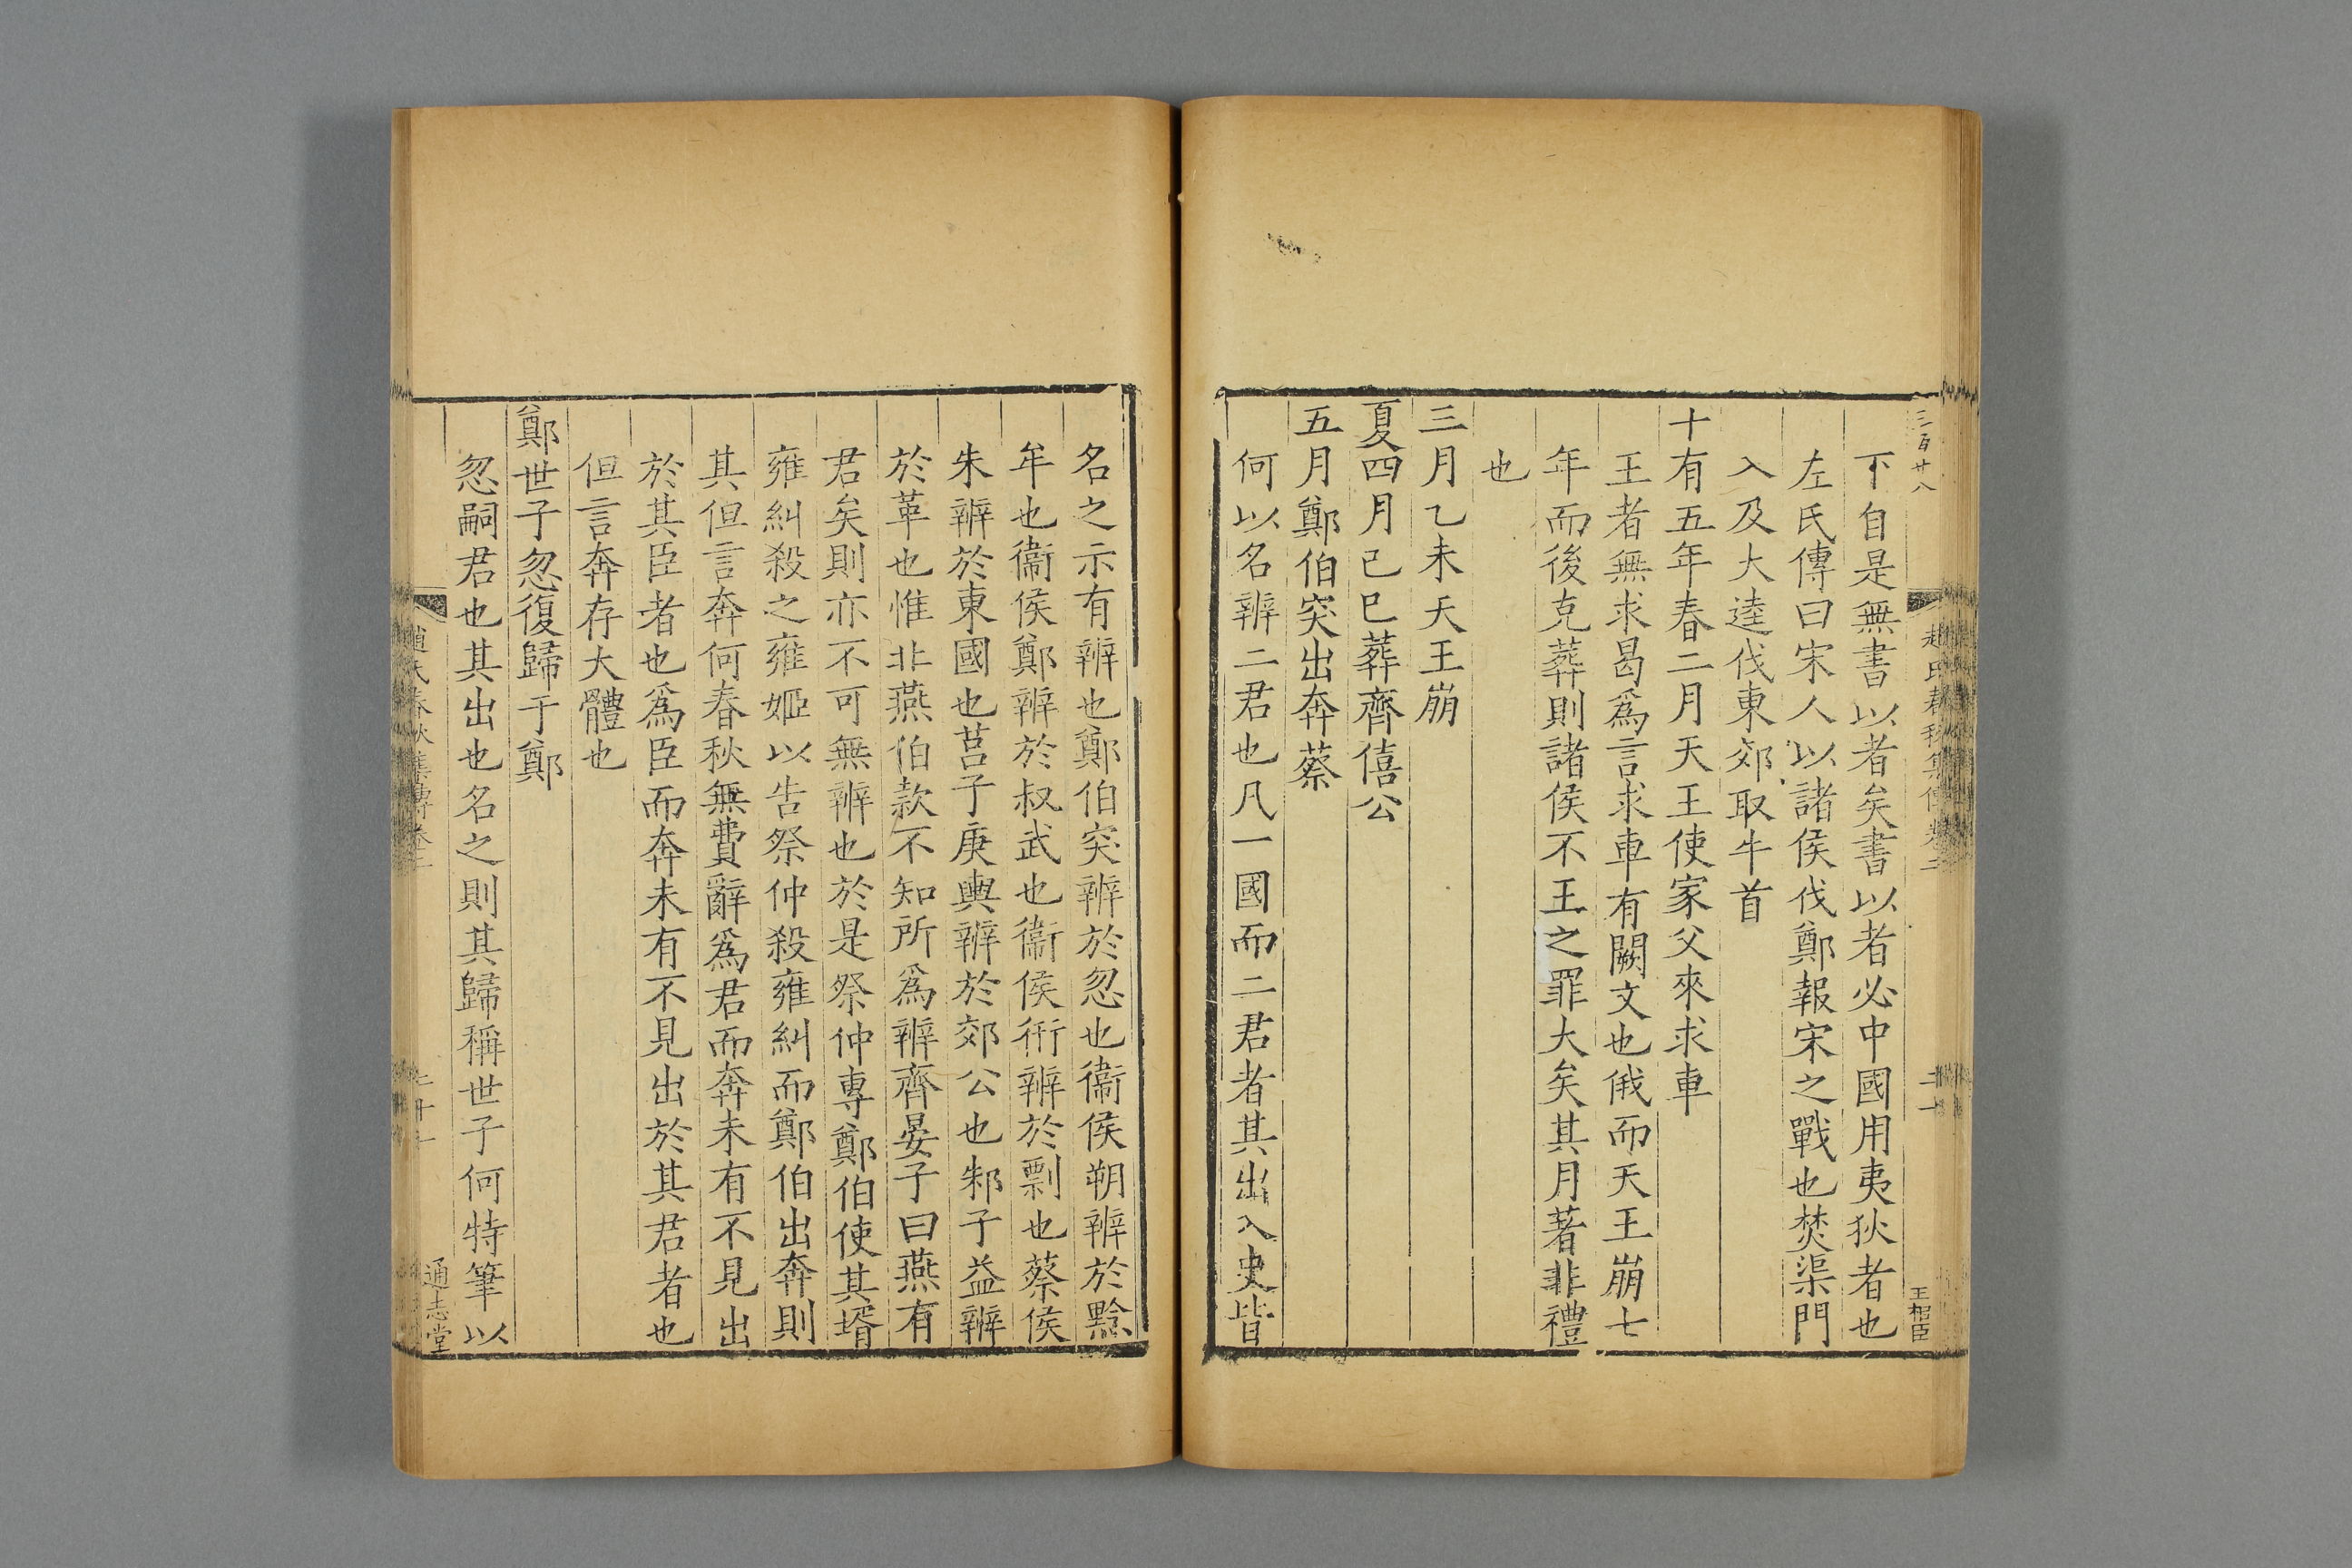 三百廿八
趙氏春秋集傳卷二
二十
王相臣
下自是無書以者矣書以者必中國用夷狄者也
左氏傳曰宋人以諸侯伐鄭報宋之戰也焚渠門
入及大逵伐東郊取牛首
十有五年春二月天王使家父來求車
王者無求曷爲言求車有闕文也俄而天王崩七
年而後克葬則諸侯不王之罪大矣其月著非禮
也
三月乙未天王崩
夏四月己巳葬齊僖公
五月鄭伯突出奔蔡
何以名辨二君也凡一國而二君者其出入史皆
名之示有辨也鄭伯突辨於忽也衞侯朔辨於黔
牟也衞侯鄭辨於叔武也衞侯衎辨於剽也蔡侯
朱辨於東國也莒子庚輿辨於郊公也邾子益辨
於革也惟北燕伯款不知所爲辨齊晏子曰燕有
君矣則亦不可無辨也於是祭仲專鄭伯使其壻
雍糾殺之雍姬以告祭仲殺雍糾而鄭伯出奔則
其但言奔何春秋無費辭爲君而奔未有不見出
於其臣者也爲臣而奔未有不見出於其君者也
但言奔存大體也
鄭世子忽復歸于鄭
忽嗣君也其出也名之則其歸稱世子何特筆以
趙氏春秋集傳卷二
通志堂